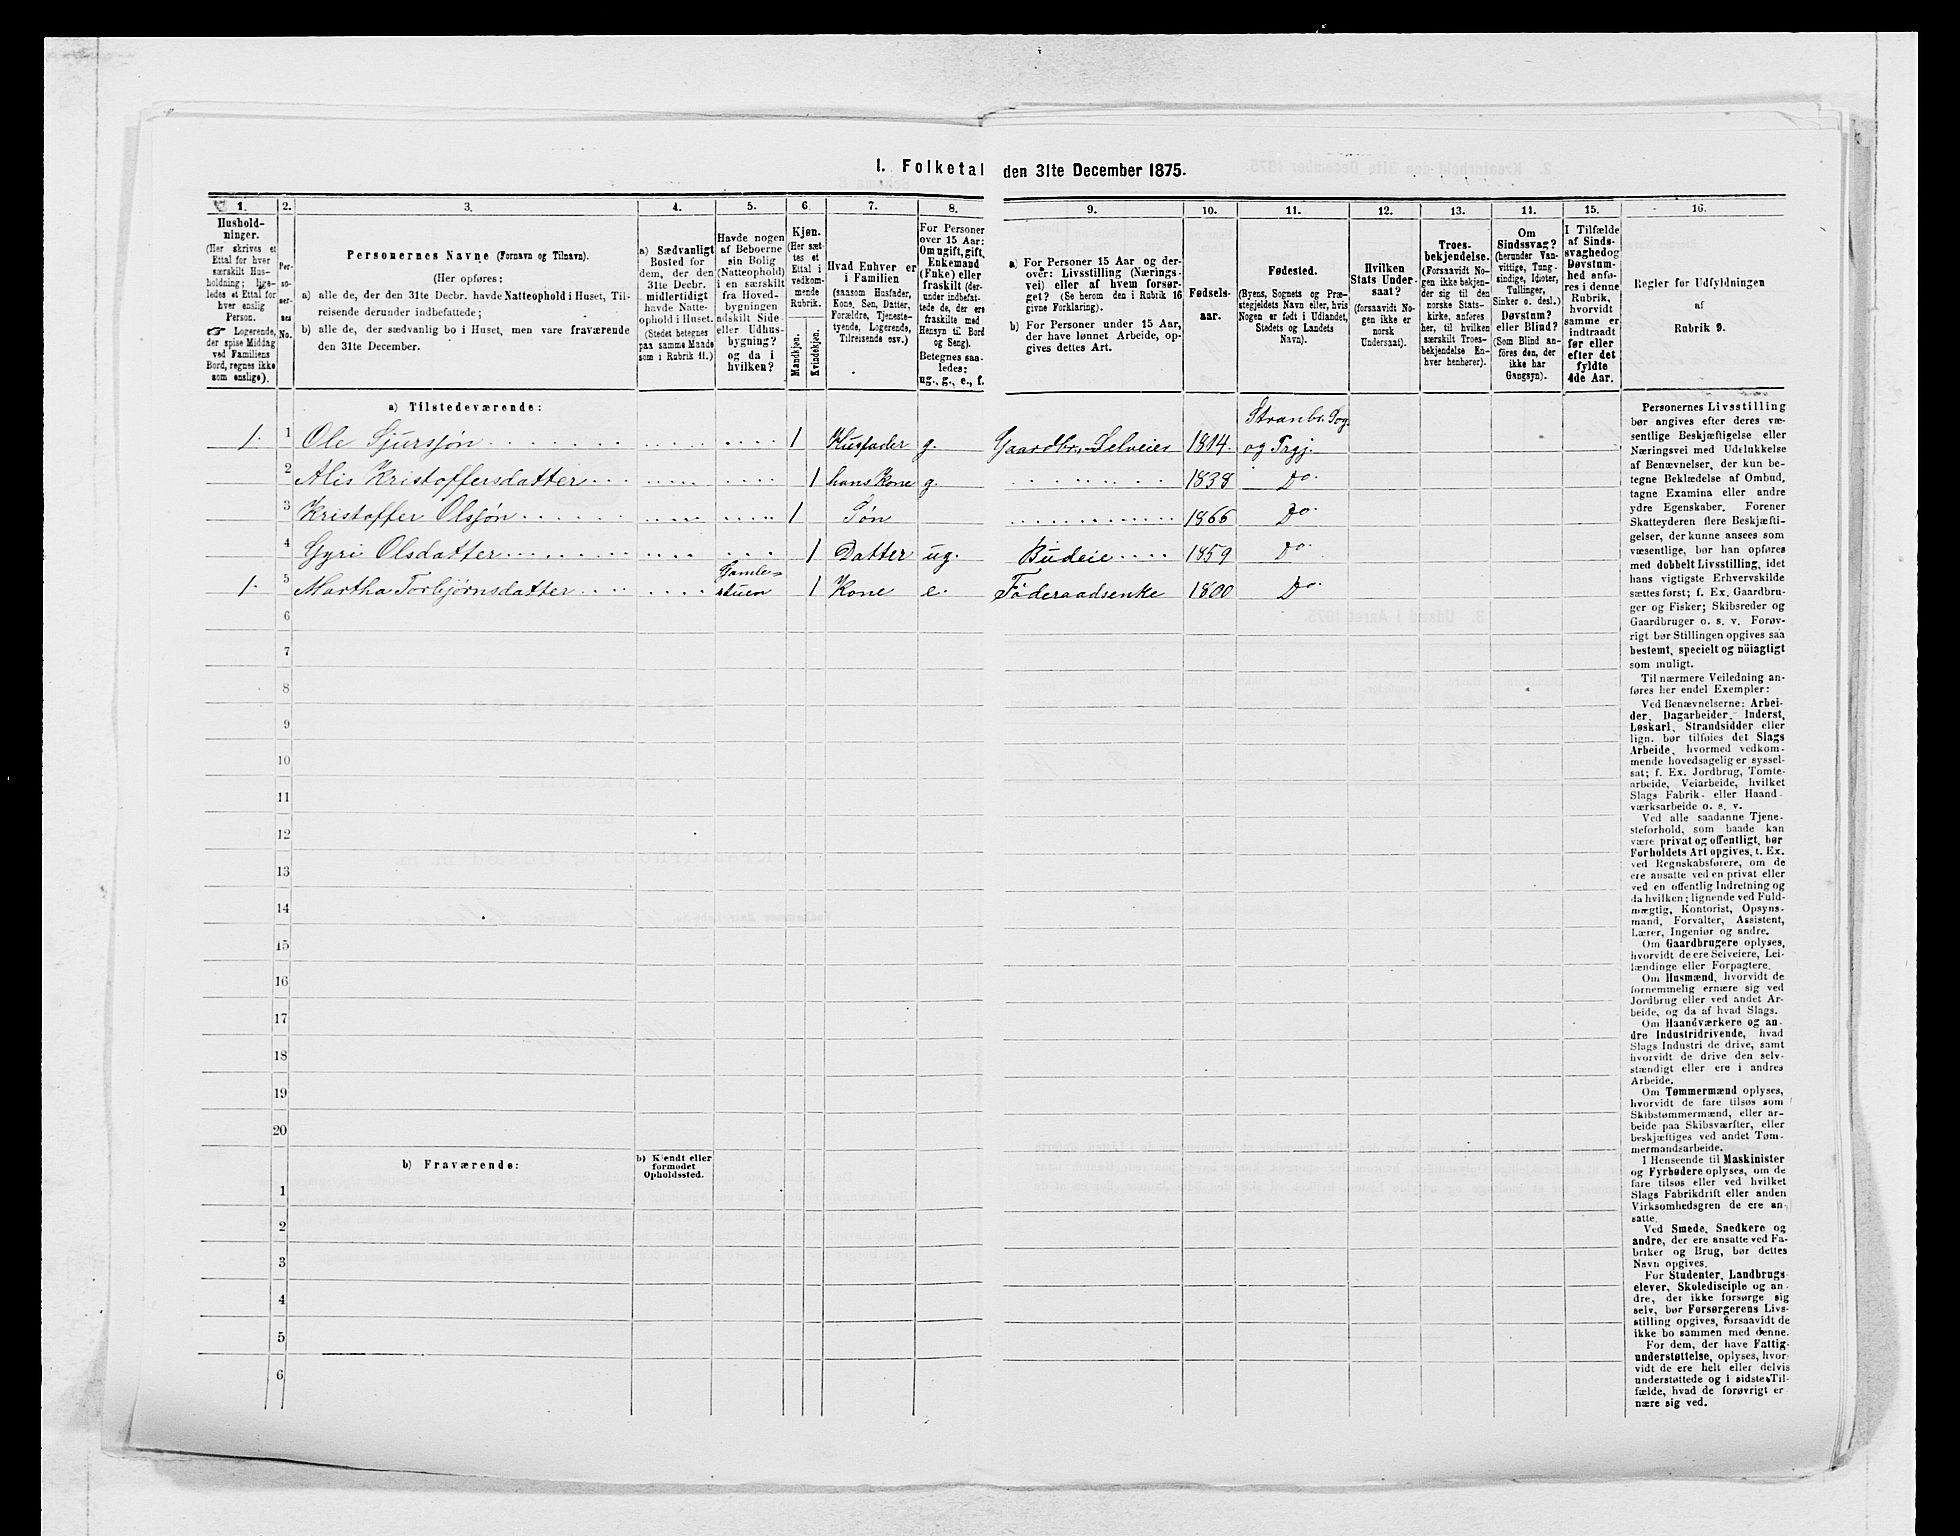 1. Folketal den 31te December 1875.
1.
2.
3.
4.
5.
6.
7.
8.
9.
10.
11.
12.
13.
14.
15.
16.
Hushold-
ninger.
(Her skrives et
Ettal for hver
særskilt Hus-
holdning; lige-
ledes et Ettal for
hver enslig
Person.
☞ Logerende,
der spise Middag
ved Familiens
Bord, regnes ikke
som enslige).
Per-
so-
ner-
nes
No.
Personernes Navne (Fornavn og Tilnavn).
(Her opføres:
a) alle de, der den 31te Decbr. havde Natteophold i Huset, Til-
reisende derunder indbefattede;
b) alle de, der sædvanlig bo i Huset, men vare fraværende
den 31te December.
a) Sædvanligt
Bosted for
dem, der den
31te Decbr.
midlertidigt
havde Natte-
ophold i Huset.
(Stedet betegnes
paa samme Maade
som i Rubrik 11.)
Havde nogen
af Beboerne
sin Bolig
(Natteophold)
i en særskilt
fra Hoved-
bygningen
adskilt Side-
eller Udhus-
bygning?
og da i
hvilken?
Kjøn.
(Her sæt-
tes et
Ettal i
vedkom-
mende
Rubrik.
Mandkjøn.
Kvindekjøn.
Hvad Enhver er
i Familien
(saasom Husfader,
Kone, Søn, Datter,
Forældre, Tjeneste-
tyende, Logerende,
Tilreisende osv.)
For Personer
over 15 Aar:
Om ugift, gift,
Enkemand
(Enke) eller
fraskilt (der-
under indbefat-
tede de, der ere
fraskilte med
Hensyn til Bord
og Seng).
Betegnes saa-
ledes:
ug., g., e., f.
a) For Personer 15 Aar og der-
over: Livsstilling (Nærings-
vei) eller af hvem forsør-
get? (Se herom den i Rubrik 16
givne Forklaring).
b) For Personer under 15 Aar,
der have lønnet Arbeide, op-
gives dettes Art.
Fødsels-
aar.
Fødested.
(Byens, Sognets og Præ-
stegjeldets Navn eller, hvis
Nogen er født i Udlandet,
Stedets og Landets
Navn).
Hvilken
Stats Under-
saat?
(forsaavidt No-
gen ikke er
norsk
Undersaat).
Troes-
bekjendelse.
(Forsaavidt No-
gen ikke bekjen-
der sig til den
norske Stats-
kirke, anføres
her, til hvilken
særskilt Troes-
bekjendelse En-
hver henhører).
Om
Sindssvag?
(herunder Van-
vittige, Tung-
sindige, Idioter,
Tullinger,
Sinker o. desl.)
Døvstum?
eller Blind?
(Som Blind an-
føres den, der
ikke har
Gangsyn).
I Tilfælde
af Sinds-
svaghed og
Døvstum-
hed anfø-
res i denne
Rubrik,
hvorvidt
samme er
indtraadt
før eller
efter det
fyldte
4de Aar.
Regler for Udfyldningen
af
Rubrik 9.
a) Tilstedeværende:
1. 1 Ole Sjursjøn 1 Husfader g. Gaardbr. Selveier 1814. Stranbr. Sog. og Prgj.
2 Alis Kristoffersdatter 1 hans Kone g. 1838 Do.
3 Kristoffer Olsjøn 1 Søn 1866 Do.
4 Gyri Olsdatter 1 Datter ug. Budeie 1859 Do.
1. 5 Martha Torbjørnsdatter Gamle-stuen 1 Kone e. Føderaadsenke 1800 Do.
6
7
8
9
10
11
12
13
14
15
16
17
18
19
20
b) Fraværende:
b) Kjendt eller
formodet
Opholdssted.
1
2
3
4
5
6
Personernes Livsstilling
bør angives efter deres væ-
sentlige Beskjæftigelse eller
Næringsvei med Udelukkelse
af Benævnelser, der kun be-
tegne Beklædelse af Ombud,
tagne Examina eller andre
ydre Egenskaber. Forener
Skatteyderen flere Beskjæfti-
gelser, der kunne ansees som
væsentlige, bør han opføres
med dobbelt Livsstilling, idet
hans vigtigste Erhvervskilde
sættes først; f. Ex. Gaardbru-
ger og Fisker; Skibsreder og
Gaardbruger o. s. v. Forøv-
rigt bør Stillingen opgives saa
bestemt, specielt og nöiagtigt
som muligt.
Til nærmere Veiledning an-
føres her endel Exempler:
Ved Benævnelserne: Arbei-
der, Dagarbeider, Inderst,
Løskarl, Strandsidder eller
lign. bør tilføies det Slags
Arbeide, hvormed vedkom-
mende hovedsagelig er syssel-
sat; f. Ex. Jordbrug, Tomte-
arbeide, Veiarbeide, hvilket
Slags Fabrik- eller Haand-
værksarbeide o. s. v.
Ved alle saadanne Tjene-
steforhold, som baade kan
være privat og offentligt, bør
Forholdets Art opgives, t. Ex.
ved Regnskabsførere, om de
ere ansatte ved en privat eller
ved en offentlig Indretning og
da hvilken; lignende ved Fuld-
mægtig, Kontorist, Opsyns-
mand, Forvalter, Assistent,
Lærer, Ingeniør og andre.
Om Gaardbrugere oplyses,
hvorvidt de ere Selveiere, Lei-
lændinge eller Forpagtere.
Om Husmænd, hvorvidt de
fornemmelig ernære sig ved
Jordbrug eller ved andet Ar-
beide, og da af hvad Slags.
Om Haandværkere og an-
dre Industridrivende, hvad
Slags Industri de drive, samt
hvorvidt de drive den selv-
stændigt eller ere i andres
Arbeide.
Om Tømmermænd oplyses,
hvorvidt de fare tilsøs som
Skibstømmermænd, eller ar-
beide paa Skibsværfter, eller
beskjæftiges ved andet Tøm-
mermandsarbeide.
I Henseende til Maskinister
og Fyrbødere oplyses, om de
fare tilsøs eller ved hvilket
Slags Fabrikdrift eller anden
Virksomhedsgren de ere an-
satte.
Ved Smede, Snedkere og
andre, der ere ansatte ved Fa-
briker og Brug, bør dettes
Navn opgives.
For Studenter, Landbrugs-
elever, Skoledisciple og an-
dre, der ikke forsørge sig
selv, bør Forsørgerens Livs-
stilling opgives, forsaavidt de
ikke bo sammen med denne.
For dem, der have Fattig-
understøttelse, oplyses, hvor-
vidt de ere helt eller delvis
understøttede og i sidste Til-
fælde, hvad de forøvrigt er-
nære sig ved.